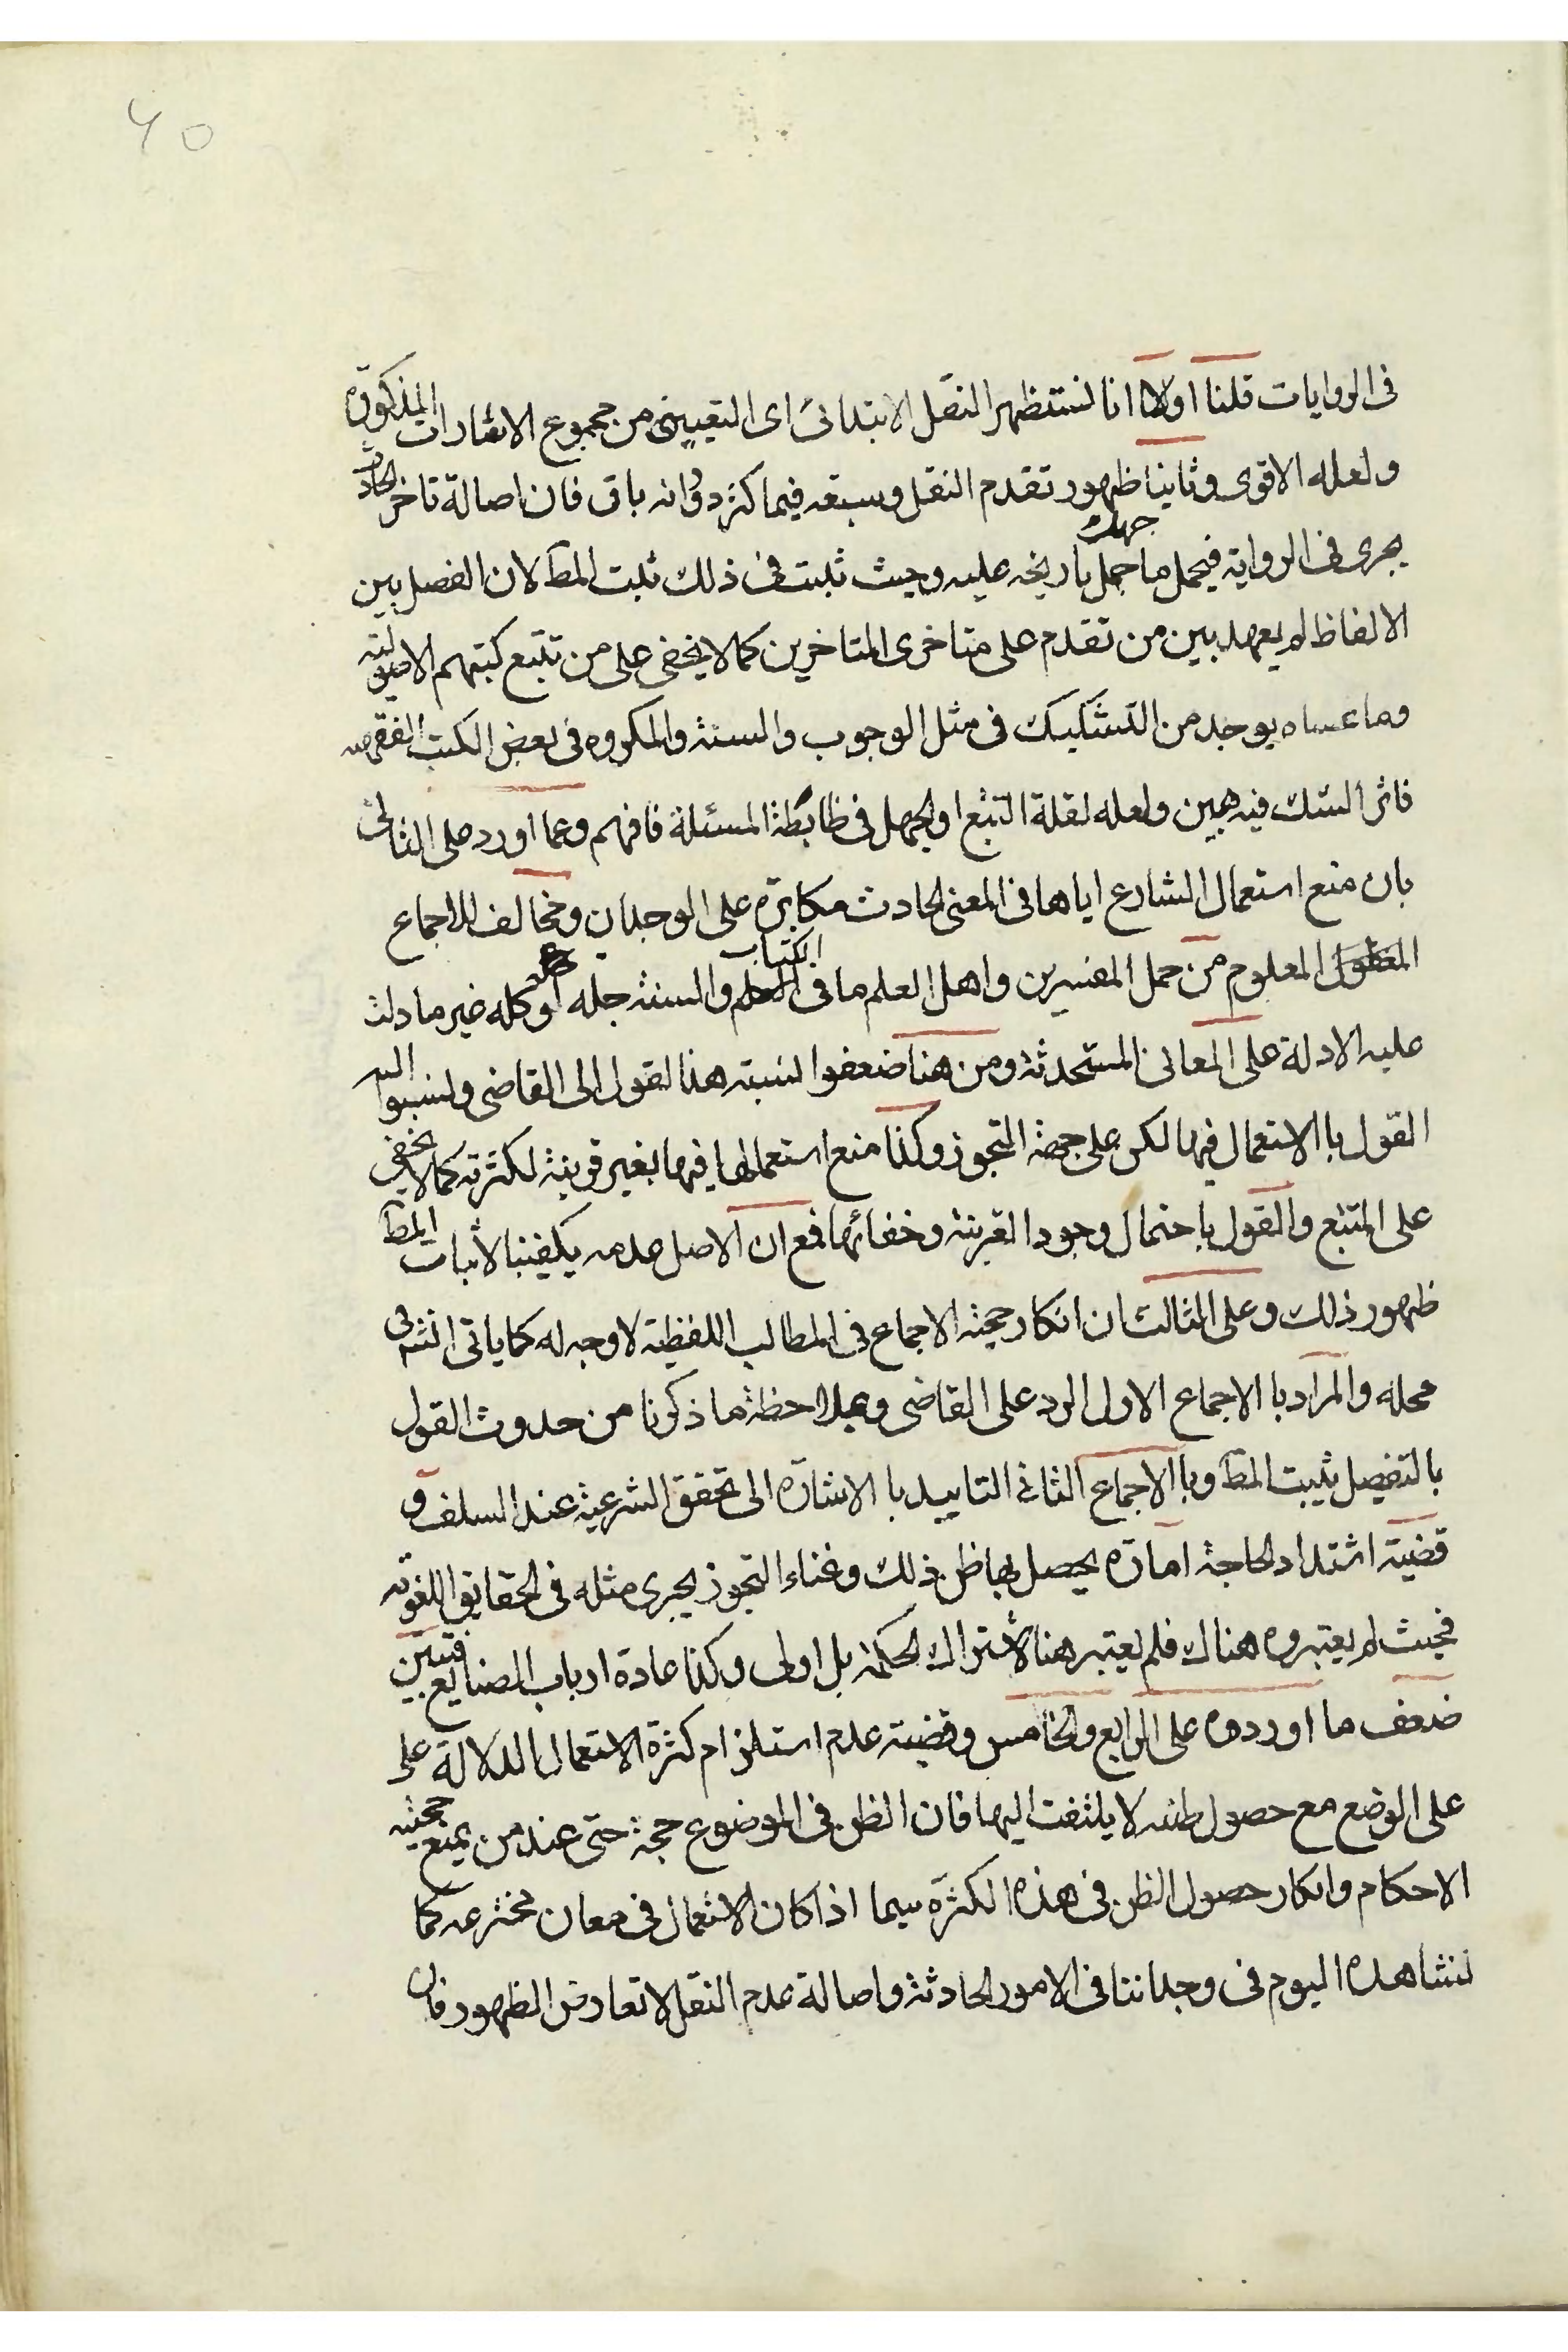 40
فى الروايات قلنا اولا انا نستظهر النقل الابتدائى اى التعيينى من مجموع الاشارات المذكورة
ولعله الاقوى وثانيا ظهور تقدم النقل وسبقه فيما كثر دورانه باق فان اصالة تاخر الحادث
يجرى فى الرواية فيحمل ما جهل تاريخه عليه وحيث ثبت فى ذلك ثبت المط لان الفصل بين
الالفاظ لم يعهد بين من تقدم على متاخرى المتاخرين كما لا يخفى على من تتبع كتبهم الاصولية
وما عساه يوجد من التشكيك فى مثل الوجوب والسنة والمكروه فى بعض الكتب الفقهيه
فاثر الشك فيه هين ولعله لقلة التتبع او الجهل فى ظابطة المسئلة فافهم وعما اورد على الثانى
بان منع استعمال الشارع اياها فى المعنى الحادث مكابرة على الوجدان ومخالف للاجماع
المعلوم من حمل المفسرين واهل العلم ما فى الكتاب والسنة جله او كله غير ما دلت
عليه الادلة على المعانى المستحدثة ومن هنا ضعفوا نسبته هذا القول الى القاضى ونسبوا اليه
القول با الاستعمال فيها لكن على جهة التجوز وكذا منع استعمالها فيها بغير قرينة لكثرته كما لا يخفى
على المتتبع والقول باحتمال وجود القرينة وخفائها فمع ان الاصل عدمه يكفينا لاثبات المط
ظهور ذلك وعلى الثالث ان انكار حجية الاجماع فى المطالب اللفظية لا وجه له كما ياتى انش فى
محله والمراد با الاجماع الاول الرد على القاضى وبملاحظة ما ذكرنا من حدوث القول
بالتفصيل يثبت المط وبا الاجماع الثانى التاييد با الاشارة الى تحقق الشرعية عند السلف و
قضية اشتداد الحاجة امارة يحصل بها ظن ذلك وغناء التجوز يجرى مثله فى الحقايق اللغويه
فحيث لم يعتبروه هناك فلم يعتبر هنا لاشتراك الحكمة بل اولى وكذا عادة ارباب الصنايع فتبين
ضعف ما اوردوه على الرابع والخامس وقضية عدم استلزام كثرة الاستعمال للدلالة على
على الوضع مع حصول ظنه لا يلتفت اليها فان الظن فى الموضوع حجة حتى عند من يمنع حجيته
الاحكام وانكار حصول الظن فى هذه الكثرة سيما اذا كان الاستعمال فى معان مخترعه كما
نشاهده اليوم فى وجداننا فى الامور الحادثة واصالة عدم النقل لا تعارض الظهور فان